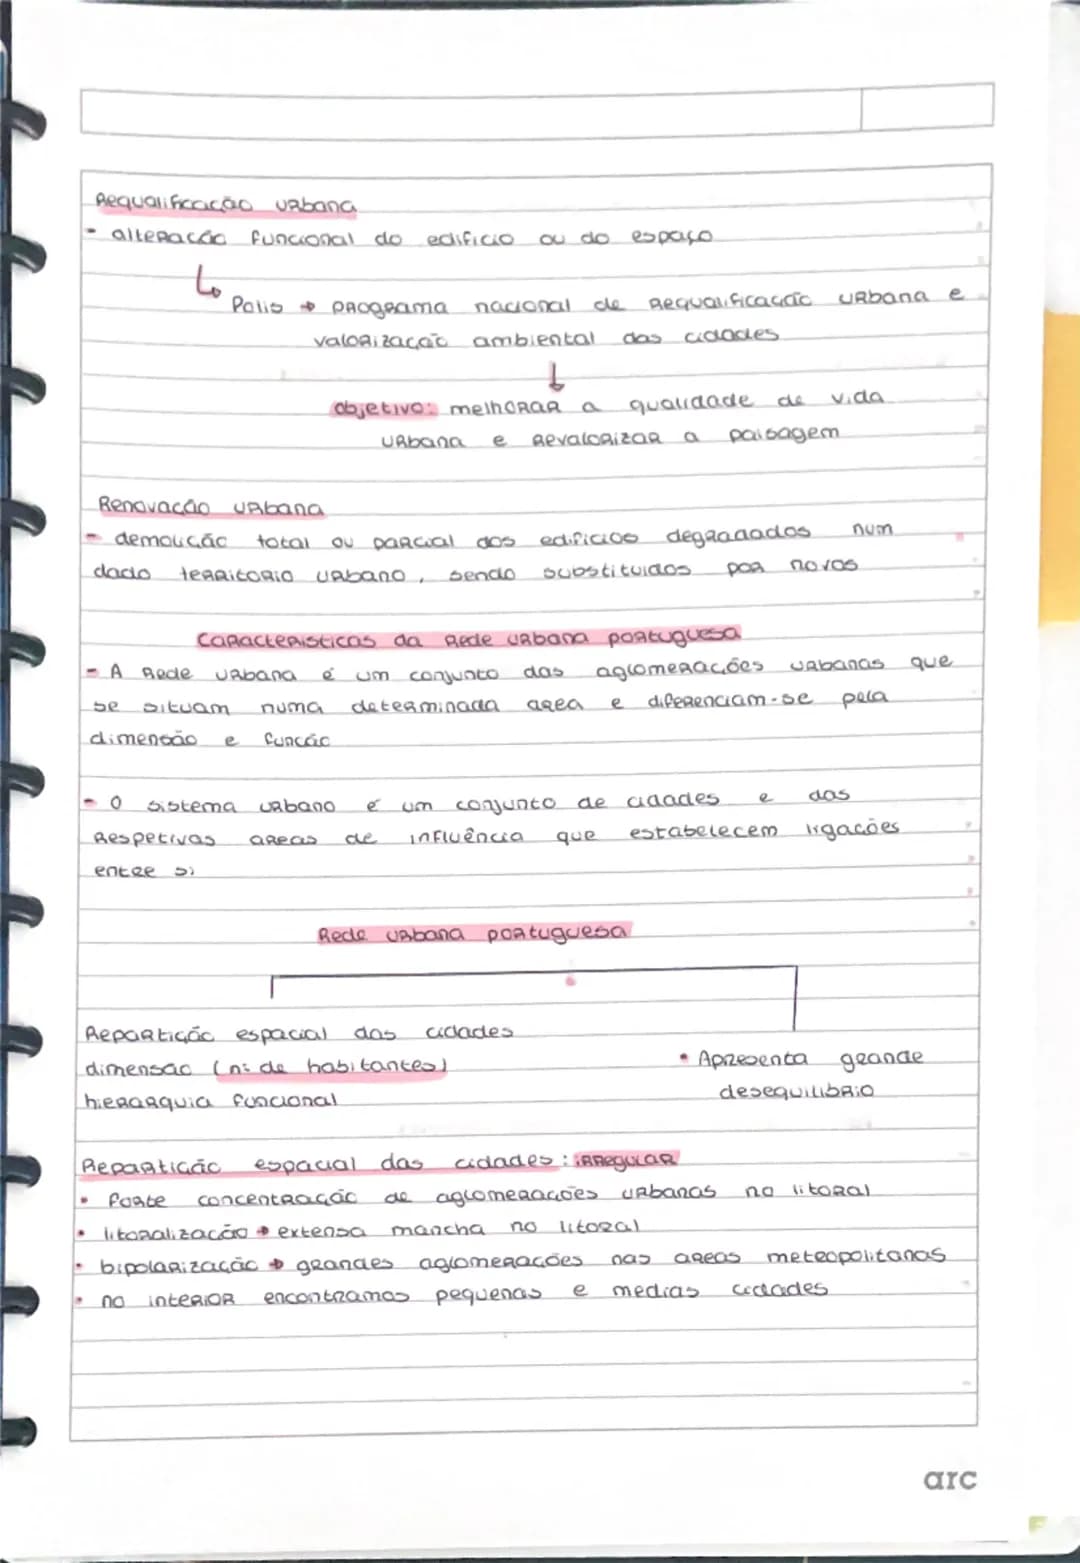 Requalificação urbana
- alteração funcional do edificio ou do espaço
↳ Polis → programa nacional de Requalificação urbana e
valorização ambiental das cidades
↓
objetivo: melhorar a qualidade de vida
urbana e revalorizar a paisagem
Renovação urbana
- demolição total ou parcial dos edificios degradados num
dado territorio urbano, sendo substituidos por novos
Caracteristicas da Rede urbana portuguesa
- A Rede urbana é um conjunto das aglomerações urbanas que
se situam numa determinada area e diferenciam-se pela
dimensão e função
- O sistema urbano é um conjunto de cidades e das
respetivas areas de influência que estabelecem ligações
entre si
Rede urbana portuguesa
Repartição espacial das cidades
dimensão (nº de habitantes)
hierarquia funcional
• Apresenta grande
desequilibrio
Repartição espacial das cidades: irregular
• forte concentração de aglomerações urbanas no litoral
• litoralização → extensa mancha no litoral
• bipolarização → grandes aglomerações nas areas metropolitanas
• no interior encontramos pequenas e medias cidades
arc